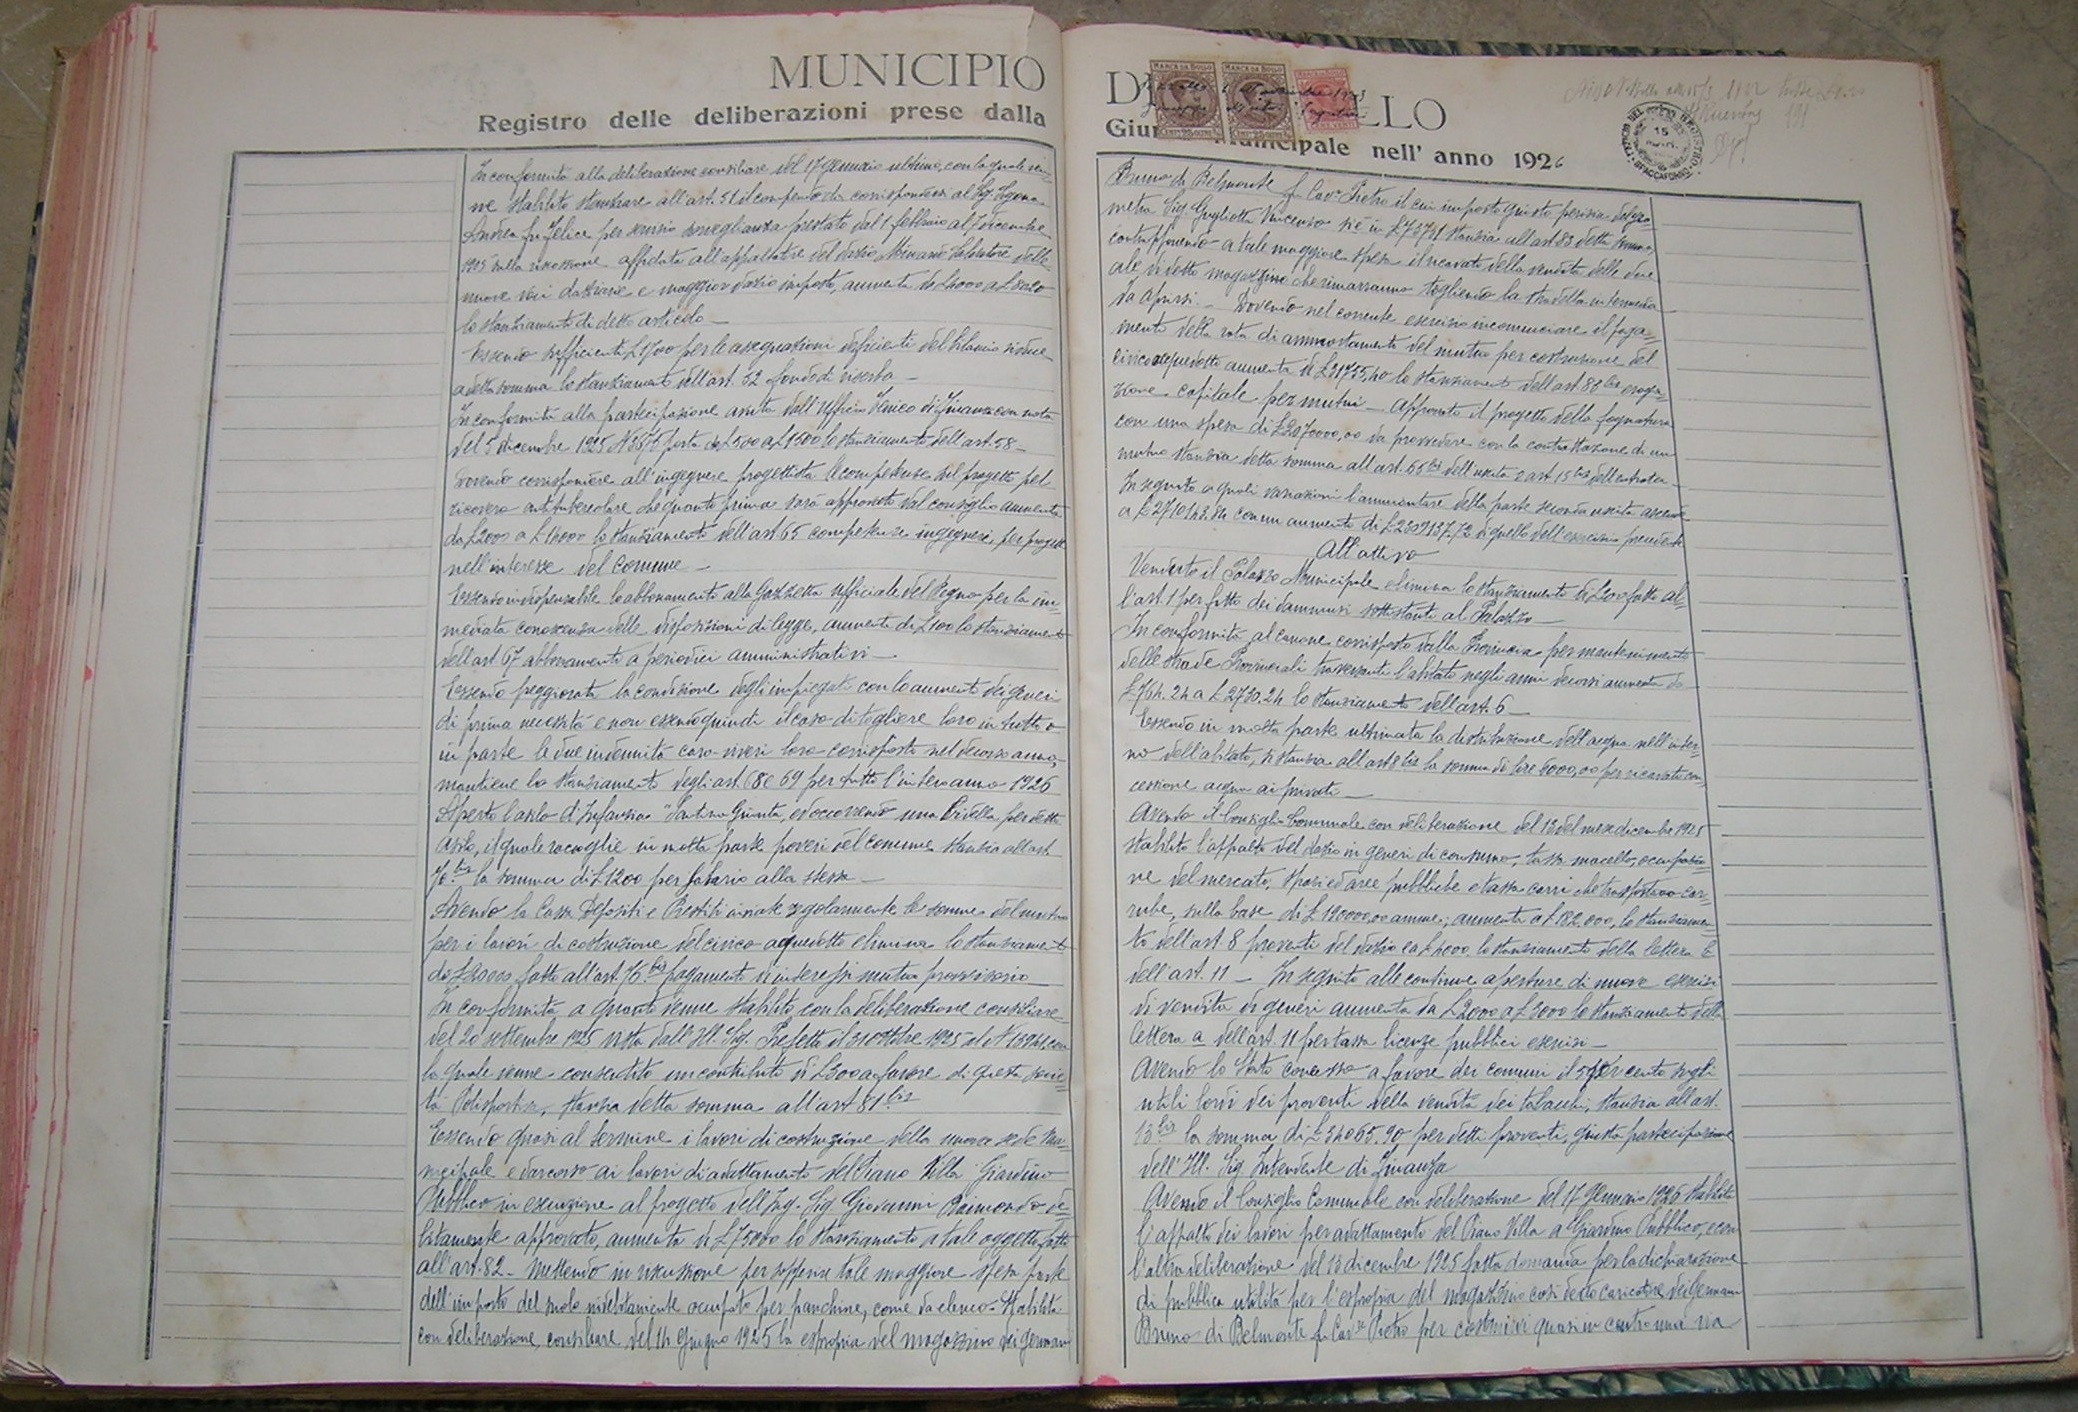 MUNICIPIO
Registro delle deliberazioni prese dalla
In conformità alla deliberazione consiliare del 17 gennaio ultimo, con la quale ven-
ne stabilito stanziare all'art. 51 il compenso da corrispondersi al Sig.
Andrea fu Felice per servizio sorveglianza prestato dal 1 febbraio al 7 dicembre
1925 sulla riscossione affidata all'appaltatore del dazio Salvatore delle
nuove voci daziarie e maggior dazio imposto, aumenta
lo stanziamento di detto articolo —
Essendo sufficienti £ 1700 per le assegnazioni deficienti del bilancio riduce
a detta somma lo stanziamento dell'art. 52 fondo di riserva —
In conformità alla partecipazione avuta dall'Ufficio Tecnico di Finanza con nota
del 5 dicembre 1925 N porta da £ 500 a £ 1500 lo stanziamento dell'art. 58 —
Dovendo corrispondere all'ingegnere progettista le competenze del progetto pel
ricovero antitubercolare che quanto prima sarà approvato dal consiglio aumenta
da £ 2000 a lo stanziamento dell'art 65 competenze ingegneri per progetti
nell'interesse del Comune —
Essendo indispensabile lo abbonamento alla Gazzetta Ufficiale del Regno per la im-
mediata conoscenza delle disposizioni di legge, aumenta di £ 100 lo stanziamento
dell'art 67 abbonamento a periodici amministrativi —
Essendo peggiorata la condizione degli impiegati con lo aumento dei generi
di prima necessità e non essendo quindi il caso di togliere loro in tutto o
in parte le due indennità caro-viveri loro corrisposte nel decorso anno,
mantiene lo stanziamento degli art. 68 e 69 per tutto l'intero anno 1926
Aperto l'asilo d'Infanzia "Santina Giunta, ed occorrendo una Bidella per detto
asilo, il quale raccoglie in molta parte poveri del comune stanzia all'art.
70 bis la somma di £ 1200 per salario alla stessa —
Avendo la Cassa Depositi e Prestiti inviate regolarmente le somme del mutuo
per i lavori di costruzione del civico acquedotto elimina lo stanziamento
di fatto all'art. 76 bis pagamento d'interessi mutuo provvisorio —
In conformità a quanto venne stabilito con la deliberazione consiliare
del 20 settembre 1925 vista dall'Ill. Sig. Prefetto il 31 ottobre 1925 al N con
la quale venne consentito un contributo di £ 500 a favore di questa socie-
tà Polisportiva, stanzia detta somma all'art 81 bis
Essendo quasi al termine i lavori di costruzione della nuova sede Mu-
nicipale e darcorso ai lavori di adattamento del Piano Villa Giardino
Pubblico in esecuzione al progetto dell'Ing. Sig Giovanni Raimondo de-
bitamente approvato, aumenta di £ 75000 lo stanziamento a tale oggetto fatto
all'art. 82 — Mettendo in riscossione per sopperire tale maggiore spesa parte
dell'importo del suolo indebitamente occupato per panchine, come da elenco. Stabilita
con deliberazione consiliare del 14 giugno 1925 la espropria del magazzino dei germani
D LLO
Giun Municipale nell'anno 1926
MARCA DA BOLLO
MARCA DA BOLLO
15
SPACCAFORNO
Bruno di Belmonte fu Cav. Pietro il cui importo giusto perizia del geo-
metra Sig. Gugliotta Vincenzo stanzia all'art 83 detta somma,
contrapponendo a tale maggiore spesa il ricavato della vendita delle due
ale di detto magazzino che rimarranno togliendo la stradella intermedia
da aprirsi. — Dovendo nel corrente esercizio incominciare il paga-
mento della rata di ammortamento del mutuo per costruzione del
civico acquedotto aumenta di £ 21755,40 lo stanziamento dell'art 88 bis eroga-
zione capitale per mutui — Approvato il progetto della fognatura
con una spesa di £ 2070000,00 da provvedere con la contrattazione di un
mutuo stanzia detta somma all'art. bis dell'uscita e art 15 bis dell'entrata.
In seguito a quali variazioni l'ammontare della parte seconda uscita ascende
a £ 2710143.84 con un aumento di £ 2309137.72 di quello dell'esercizio precedente
All'attivo
Venduto il Palazzo Municipale elimina lo stanziamento di £ 200 fatto al-
l'art. 1 per fitto dei dammusi sottostanti al Palazzo —
In conformità al canone corrisposto dalla Provincia per mantenimento
delle strade Provinciali traversanti l'abitato negli anni decorsi aumenta da
£ 764.24 a £ 2730.24 lo stanziamento dell'art. 6 —
Essendo in molta parte ultimata la distribuzione dell'acqua nell'inter-
no dell'abitato, si stanzia all'art 8 bis la somma di lire 6000,00 per ricavato con-
cessione acqua ai privati —
Avendo il Consiglio Comunale con deliberazione del 13 del mese dicembre 1925
stabilito l'appalto del dazio in generi di consumo, tassa macello, occupazio-
ne del mercato, spazi ed aree pubbliche e tassa carri che trasportano car-
rube, sulla base di £ 190000,00 annue; aumenta a £ 182.000, lo stanziamen-
to dell'art. 8 proventi del dazio ed a £ 4000 lo stanziamento della lettera b
dell'art. 11 — In seguito alle continue aperture di nuove esercizi
di vendita di generi aumenta da £ 2000 a £ 3000 lo stanziamento della
lettera a dell'art. 11 per tassa licenze pubblici esercizi —
Avendo lo Stato concesso a favore dei comuni il per cento sugli
utili lordi dei proventi della vendita dei tabacchi, stanzia all'art.
13 bis la somma di £ 34065.90 per detti proventi, giusta partecipazione
dell'Ill. Sig Intendente di Finanza
Avendo il Consiglio Comunale con deliberazione del 17 gennaio 1926 stabilito
l'appalto dei lavori per adattamento del Piano Villa a Giardino Pubblico, e con
l'altra deliberazione del 13 dicembre 1925 fatta domanda per la dichiarazione
di pubblica utilità per l'espropria del magazzino così detto caricatore dei Germani
Bruno di Belmonte fu Cav. Pietro per costruirvi quasi in centro una via